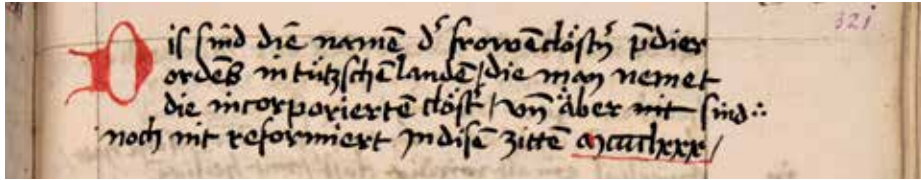 321
Dis sind die namē dˢ frowenclöstˢ p̄dier
ordēs in tützschen landen / die man nemet
die incorporiertē clöstˢ / vn̄ aber nit sind
noch nit reformiert in disē zittē mcccclxxx /